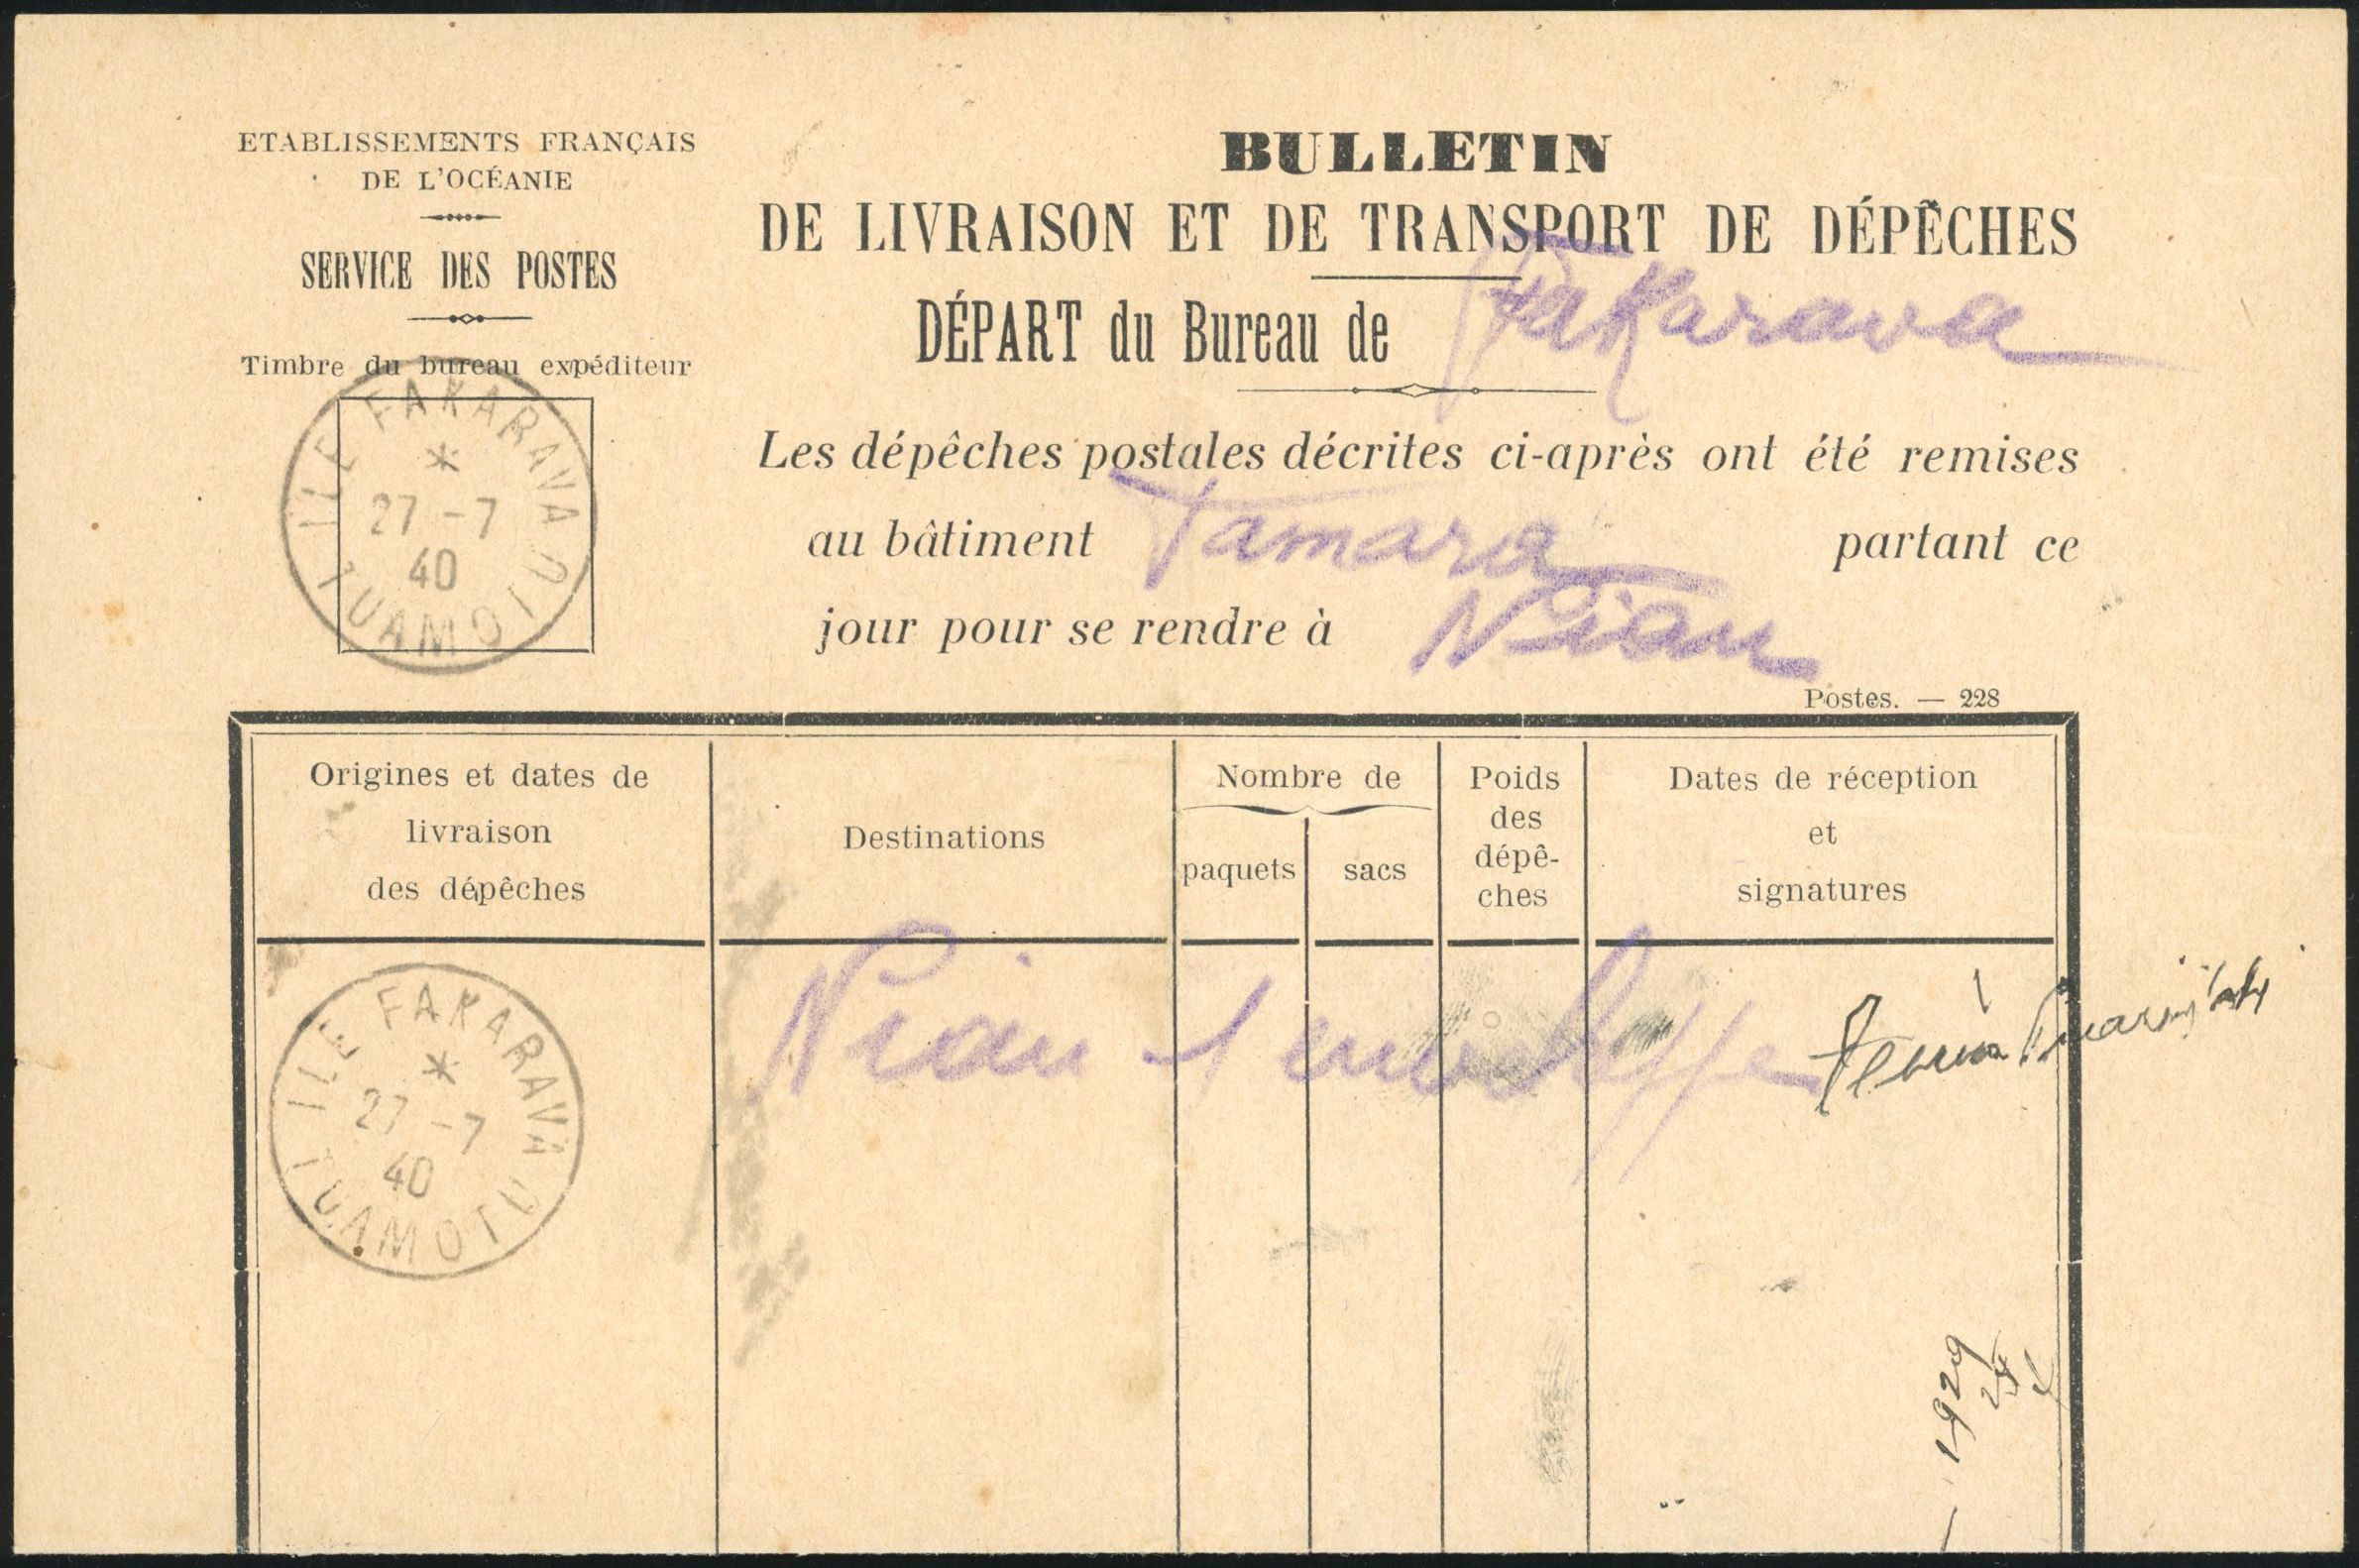 ETABLISSEMENTS FRANÇAIS
DE L'OCÉANIE
SERVICE DES POSTES
Timbre du bureau expéditeur
ILE FAKARAVA
27 - 7
40
TUAMOTU
BULLETIN
DE LIVRAISON ET DE TRANSPORT DE DÉPÊCHES
DÉPART du Bureau de Fakarava
Les dépêches postales décrites ci-après ont été remises
au bâtiment Tamara partant ce
jour pour se rendre à Niau
Postes. — 228
Origines et dates de livraison des dépêches
Destinations
Nombre de
paquets
sacs
Poids des dépê-ches
Dates de réception et signatures
ILE FAKARAVA
27 - 7
40
TUAMOTU
Niau - 1 enveloppe
1929